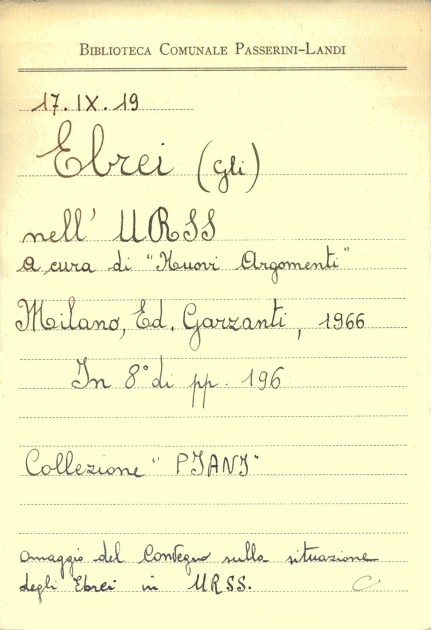 BIBLIOTECA COMUNALE PASSERINI-LANDI
17. IX. 19
Ebrei (gli)
nell' URSS
a cura di "Nuovi Argomenti"
Milano, Ed. Garzanti, 1966
In 8° di pp. 196
Collezione "PIANI"
omaggio del Convegno sulla situazione
degli Ebrei in URSS.
C